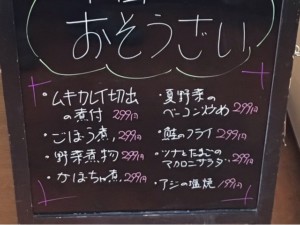 おそうざい
・ムキカレイ切出の煮付 299円
・ごぼう煮, 299円
・野菜煮物 299円
・かぼちゃ煮. 299円
・夏野菜のベーコン炒め 299円
・鮭のフライ 299円
・ツナとたまごのマカロニサラダ 299円
・アジの塩焼 199円